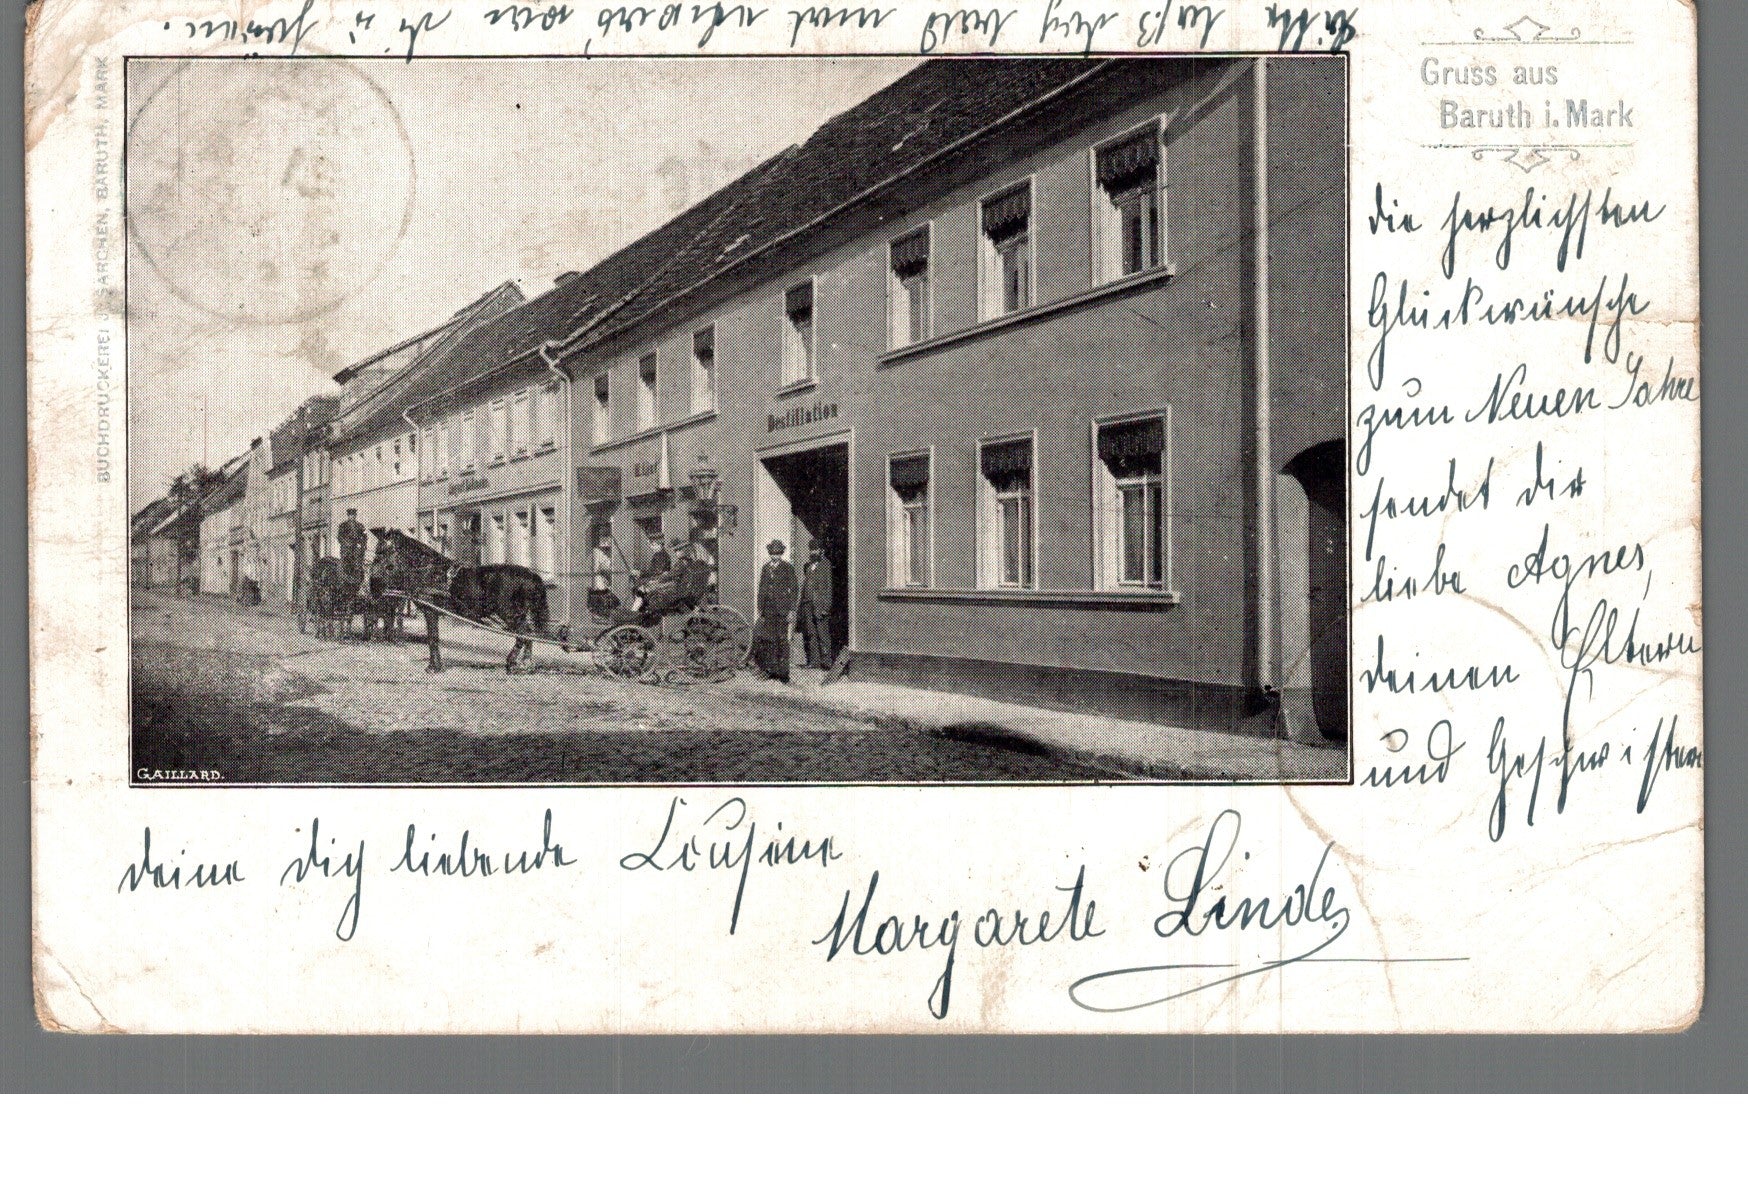 Gruss aus
Baruth i. Mark
Die herzlichsten
Glückwünsche
zum Neuen Jahre
sendet dir
liebe Agnes,
deinen Eltern
und Geschwister
deine dich liebende Cousine
Margarete Linde
Bitte laßt doch bald mal etwas von
Destillation
GAILLARD.
BUCHDRUCKEREI J. SÄRCHEN, BARUTH, MARK